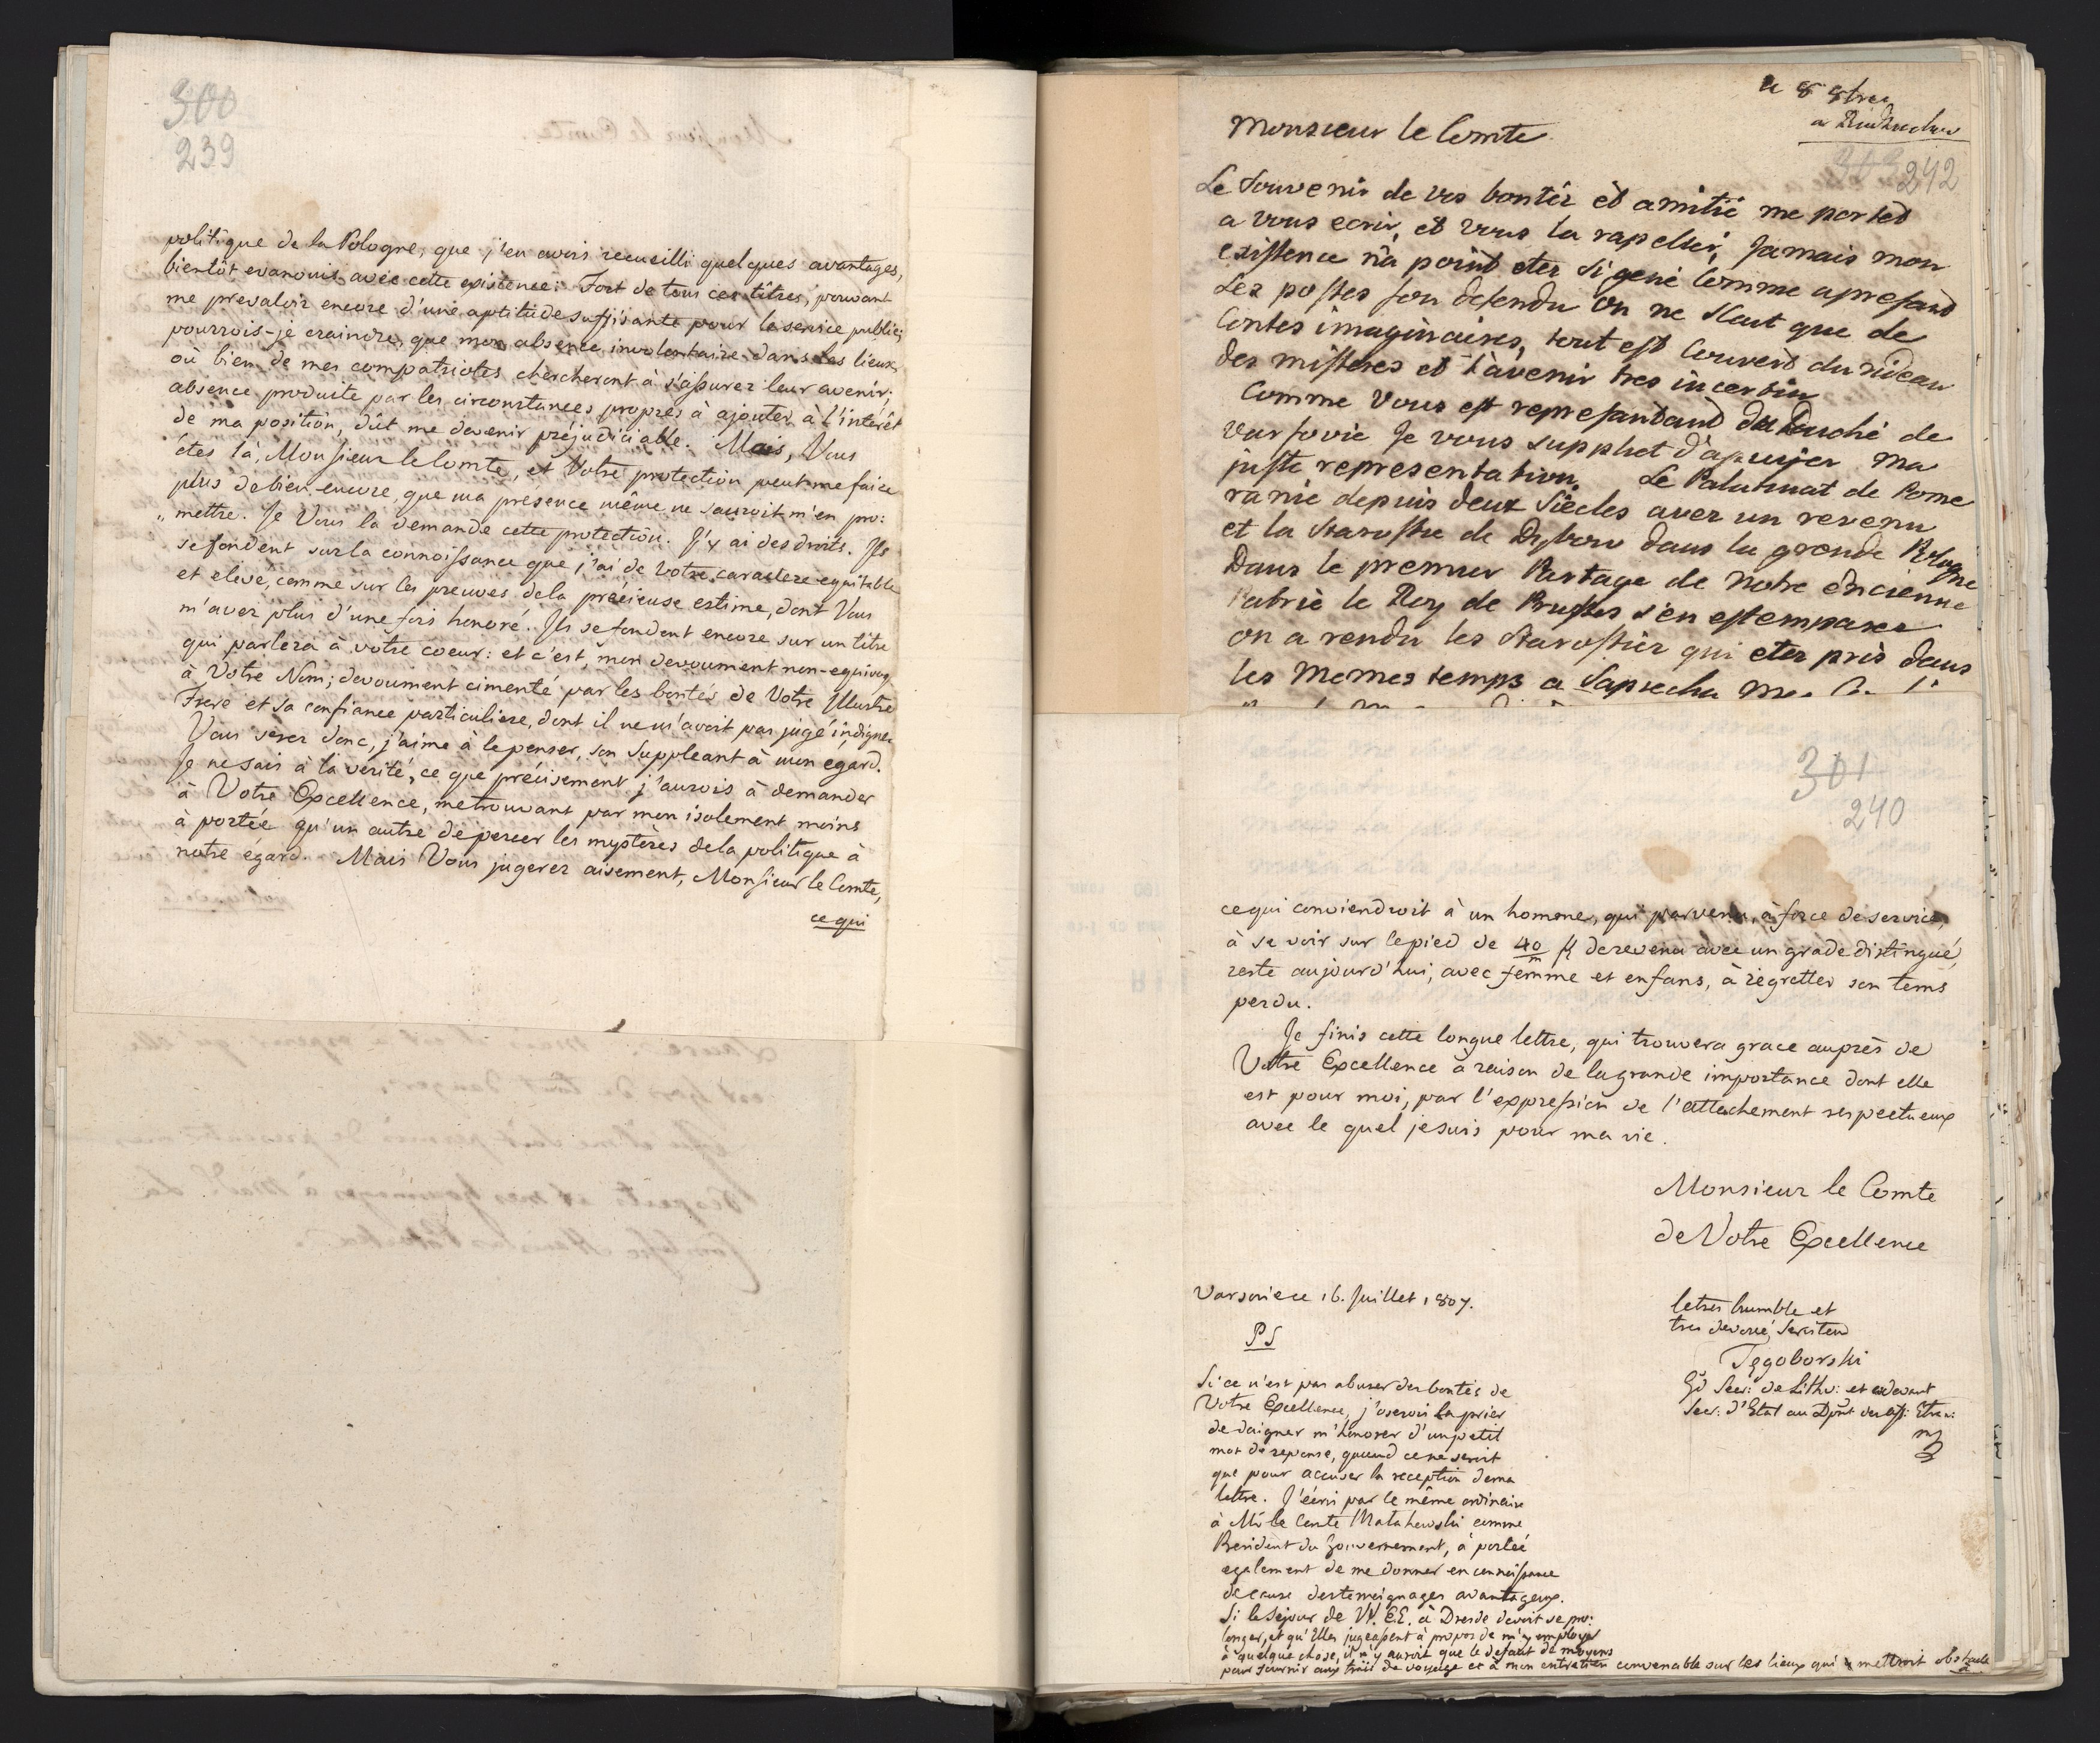 300
239
politique de la Pologne, que j'en avois recueilli quelques avantages,
bientôt evanouis avec cette existence: Fort de tous ces titres, pouvant
me prevaloir encore d'une aptitude suffisante pour le service public;
pourrois-je craindre, que mon absence involontaire dans les lieux,
où bien de mes compatriotes chercheront à s'assurer leur avenir;
absence produite par les circonstances propres à ajouter à l'intérêt
de ma position, dût me devenir préjudiciable. Mais, Vous
étes là, Monsieur le Comte, et Votre protection peut me faire
plus de bien encore, que ma présence même ne sauroit m'en pro:
„ mettre. Je Vous la demande cette protection. J'y ai des droits. Ils
se fondent sur la connoissance que j'ai de Votre caractere equitable
et elevé, comme sur les preuves de la précieuse estime, dont Vous
m'avez plus d'une fois honoré. Ils se fondent encore sur un titre
qui parlera à votre coeur: et c'est, mon devoument non-equivoq
à Votre Nom; devoument cimenté par les bontés de Votre Illustre
Frere et sa confiance particuliere, dont il ne m'avoit pas jugé indigne.
Vous serez donc, j'aime à le penser, son Suppleant à mon egard.
Je ne sais à la verité, ce que précisement j'aurois à demander
à Votre Excellence, me trouvant par mon isolement moins
à portée qu'un autre de percer les mystères de la politique à
notre égard. Mais Vous jugerez aisement, Monsieur le Comte,
ce qui
a
Monsieur le Comte
303 242
Le Souvenir de vos bontéz èt amitié me portet
a vous ecrir, et vous la rapeller, Jamais mon
existence n'a point eter si gené Comme apresant
Les postes son defendu on ne Scaut que de
Contes imaginaires, tout est Couvert du rideau
des misteres et l'àvenir tres incertin
Comme Vous est represantant du Duché de
Varsovie Je vous suppliet d'àpuijer ma
juste representation. Le Palatinat de Pome
ranie depuis deux Siècles avez un revenu
et la Starostie de Dybow dans la grande Pologne
Dans le premier Partage de Notre èncienne
Patriè le Roy de Prusses s'en est emparer
on a rendu les Starostièz qui eter pris dans
les Memes temps a Sapiecha
301
240
ce qui conviendroit à un homme, qui parvenu, à force de service,
à se voir sur le pied de 40/m # de revenu avec un grade distingué,
reste aujourd'hui, avec femme et enfans, à regretter son tems
perdu.
Je finis cette longue lettre, qui trouvera grace auprès de
Votre Excellence à raison de la grande importance dont elle
est pour moi, par l'expression de l'attachement respectueux
avec le quel je suis pour ma vie.
Monsieur le Comte
de Votre Excellence
Varsovie ce 16. Juillet 1807.
le tres humble et
tres devoué Serviteur
Tęgoborski
Gd Secr: de Lithu: et cidevant
Secr: d'Etat au Dpnt des aff: Etran:
mp
PS
Si ce n'est pas abuser des bontés de
Votre Excellence, j'oserois la prier
de daigner m'honorer d'un petit
mot de reponse, quand ce ne seroit
que pour accuser la reception de ma
lettre. J'écris par le même ordinaire
à Mr le Comte Małachowski comme
President du Gouvernement, à portée
egalement de me donner en connoissance
de cause des temoignages avantageux.
Si le Séjour de VV. E.E. à Dresde devoit se pro:
longer, et qu'Elles jugeassent à propos de m'y employer
à quelque chose, il n'y auroit que le defaut de moyens
pour fournir aux fraix de voyage et à mon entretien convenable sur les lieux qui y mettroit obstacle